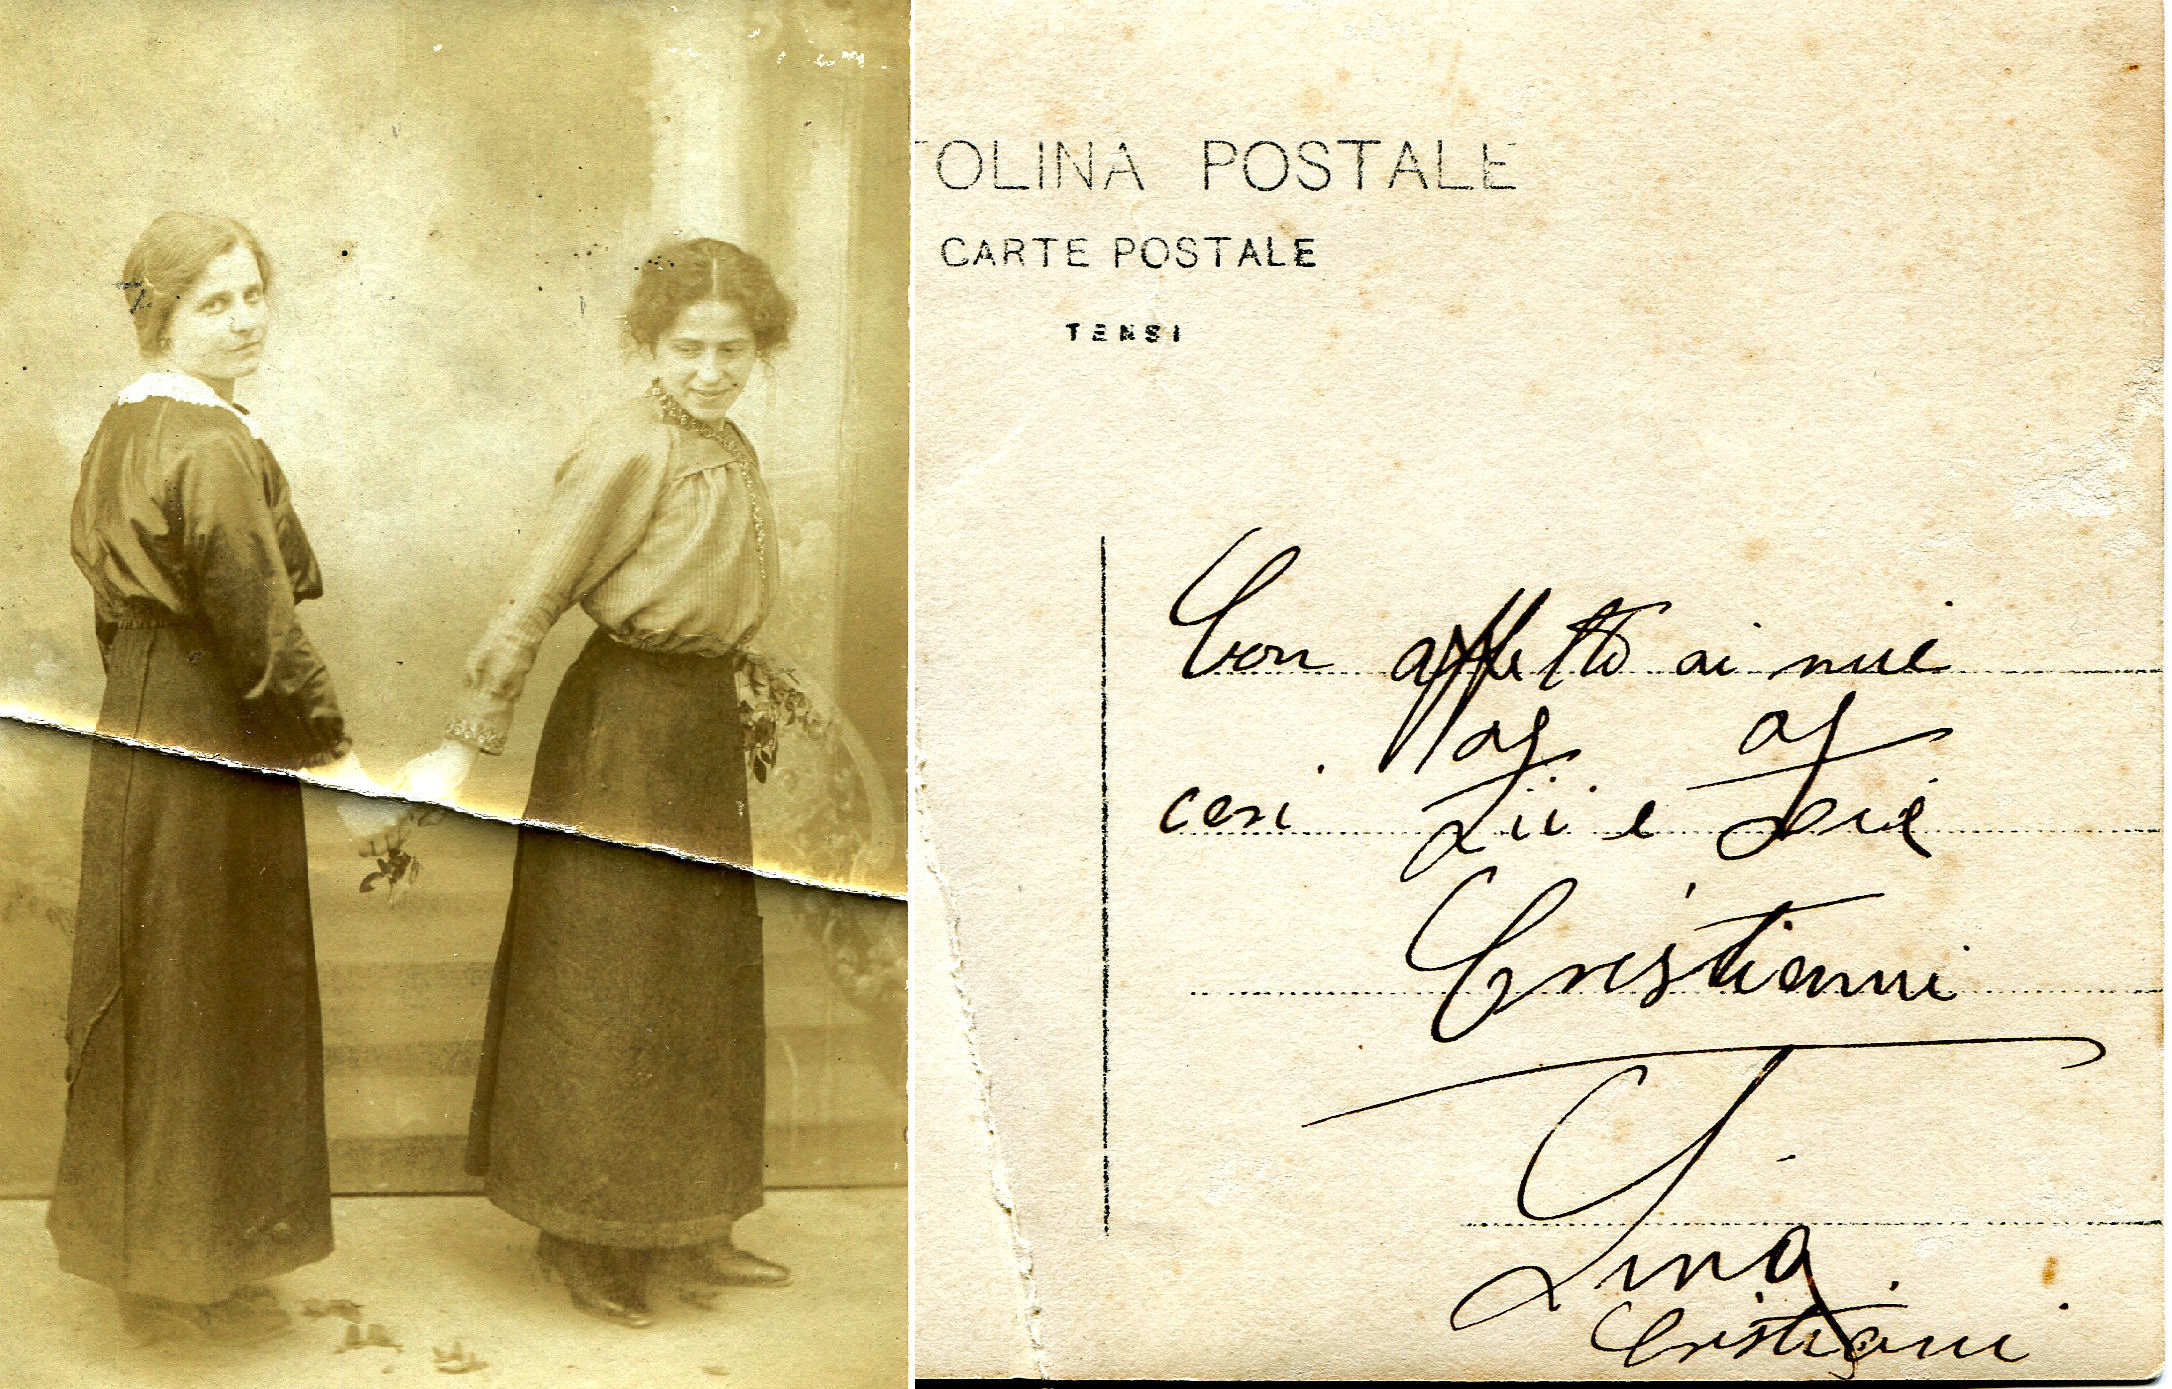 TOLINA POSTALE
CARTE POSTALE
TENSI
Con affetto ai miei
cari Zii e Zie
Cristianni
Lina
Cristiani